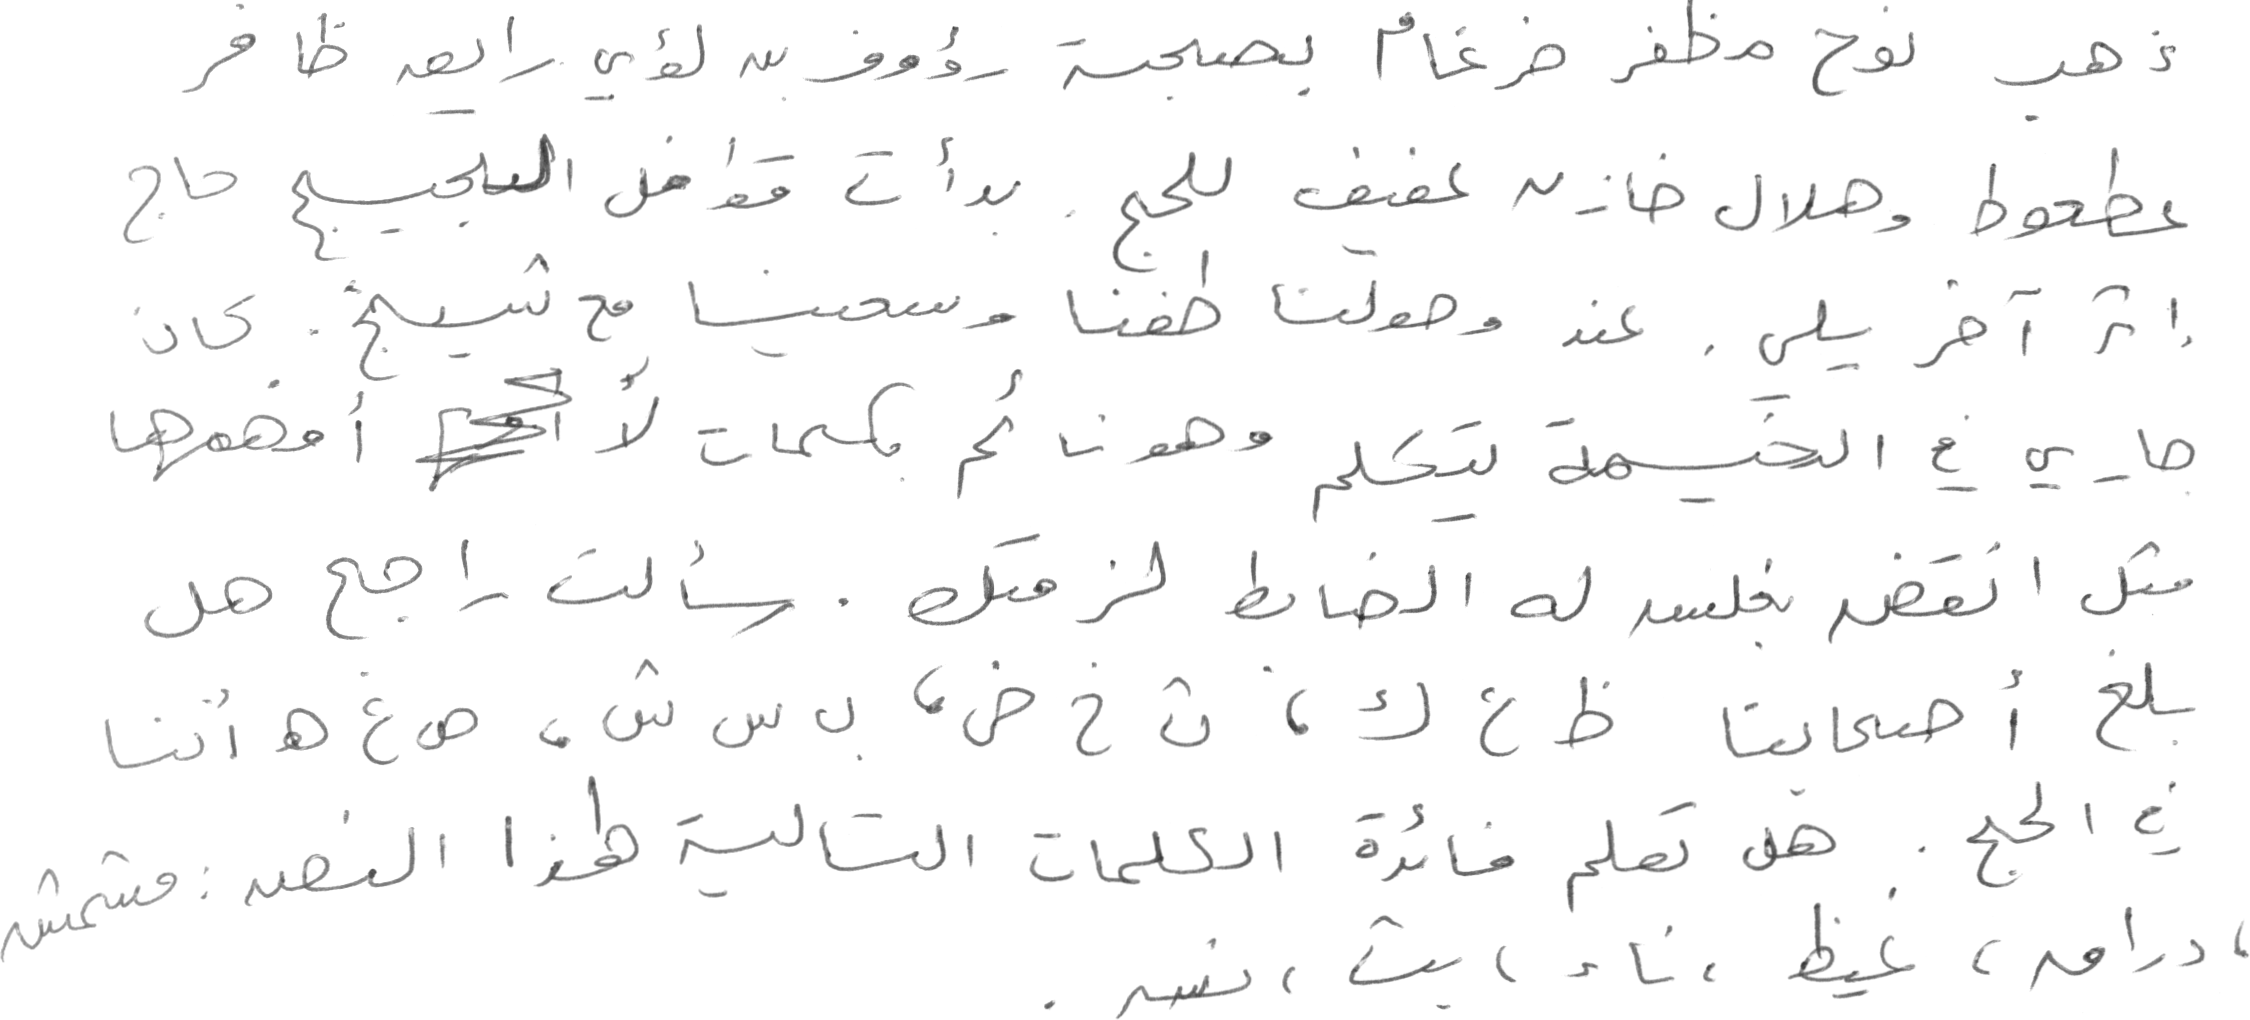 ذهب نوح مظفر ضرغام بصحبة رؤوف بن لؤي رايق ظافر
عطعوط وهلال خازن عفيف للحج. بدأت قوافل الحجيج حاج
إثر آخر يلي. عند وصولنا طفنا وسعينا مع شيخ. كان
جاري في الخيمة يتكلم وهو نائم بكلمات لأ أفهمها
مثل انقض بخلس له الضابط لزمتك. سألت راجح هل
بلغ أصحابنا ظ ع ك، ث خ ض، ب س ش، ص غ ه أننا
في الحج. هل تعلم فائدة الكلمات التالية لهذا النص: مشمش
، دراق، غيظ، ناء، بيت، نسر.